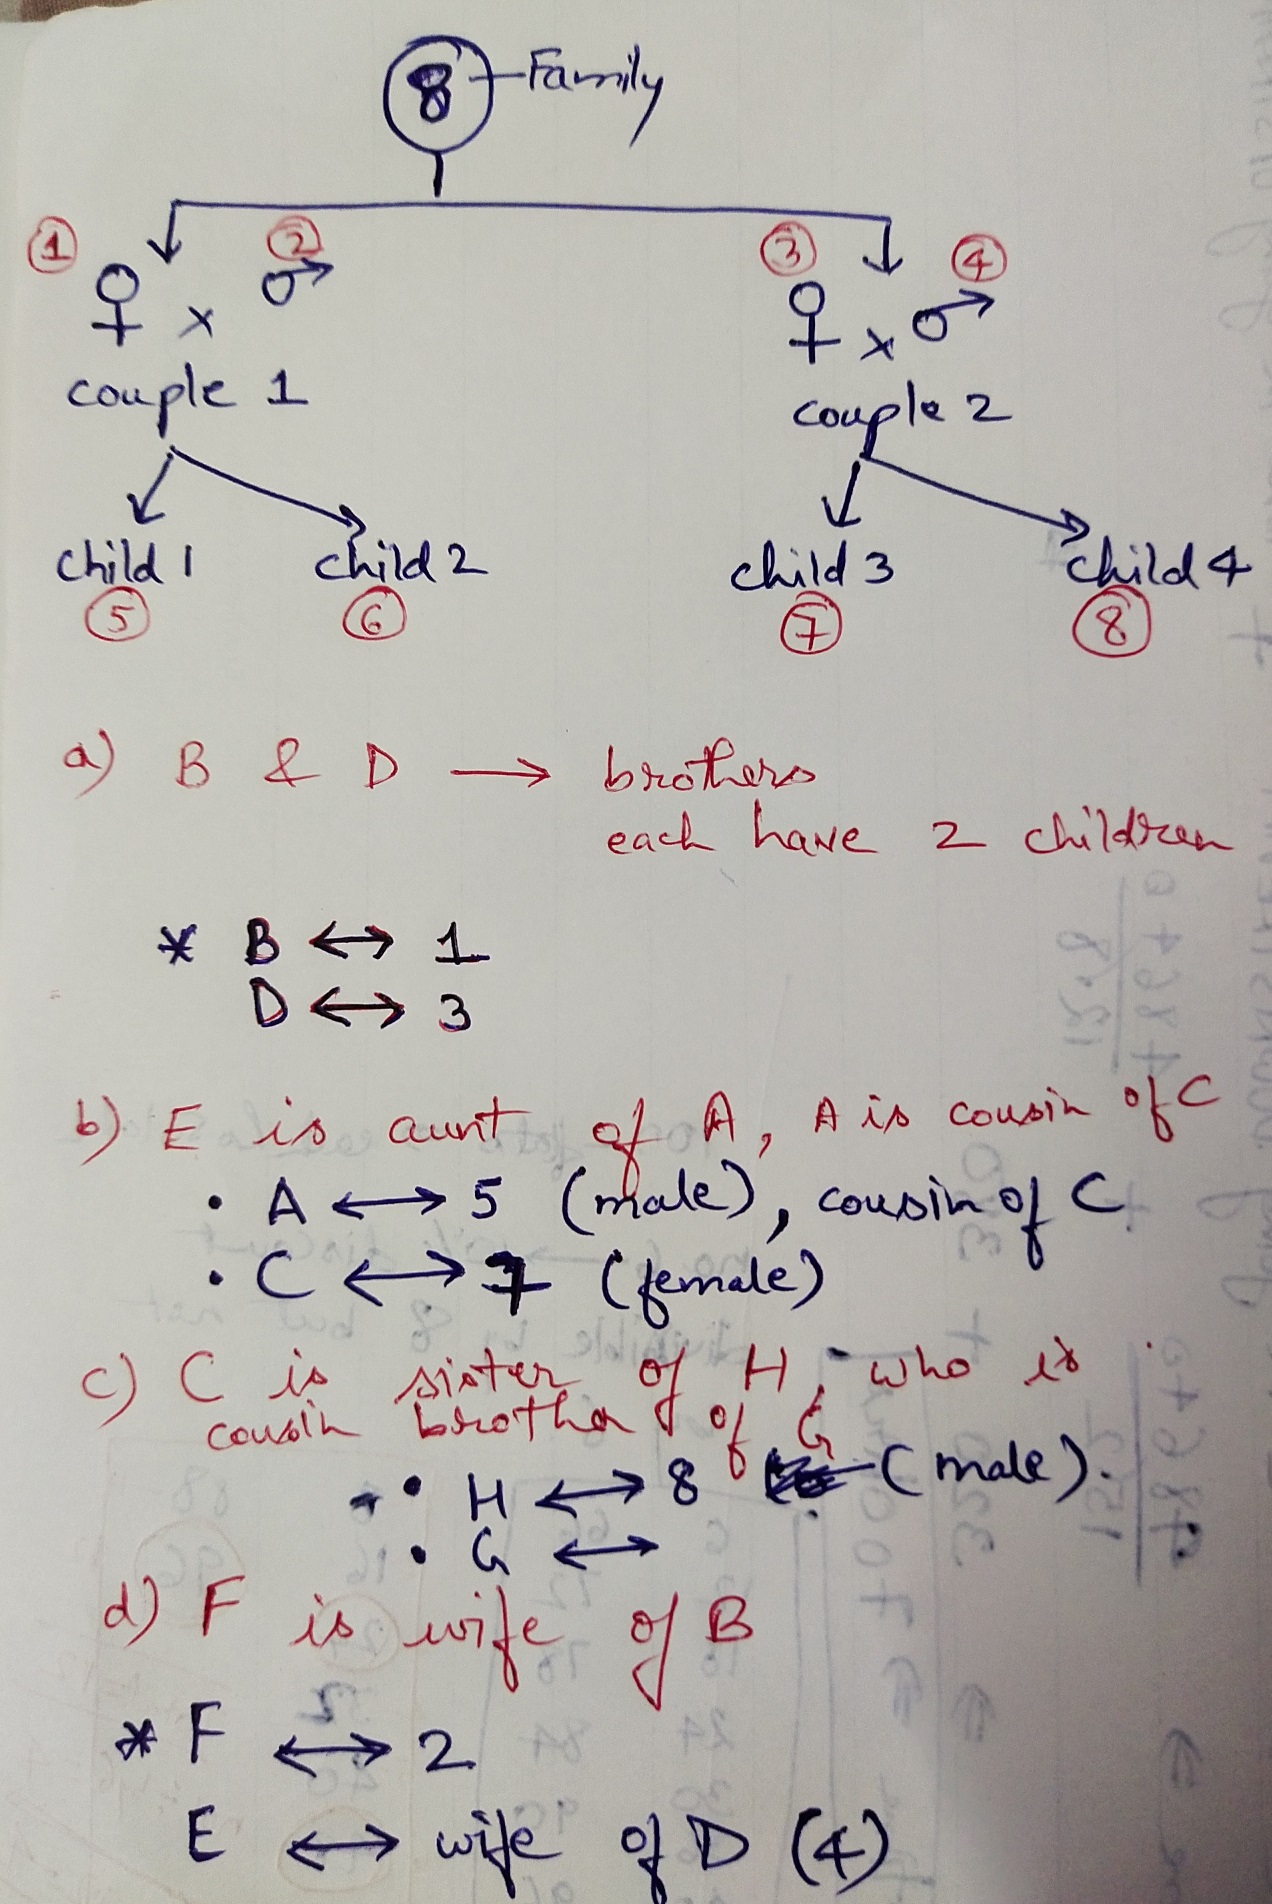 8 Family
1 2 3 4
♀ x ♂ ♀ x ♂
couple 1 couple 2
child 1 child 2 child 3 child 4
5 6 7 8
a) B & D → brothers
each have 2 children
* B ↔ 1
D ↔ 3
b) E is aunt of A, A is cousin of C
• A ↔ 5 (male), cousin of C
• C ↔ 7 (female)
c) C is sister of H, who is
cousin brother of G
• H ↔ 8 (male).
• G ↔
d) F is wife of B
* F ↔ 2
E ↔ wife of D (4)